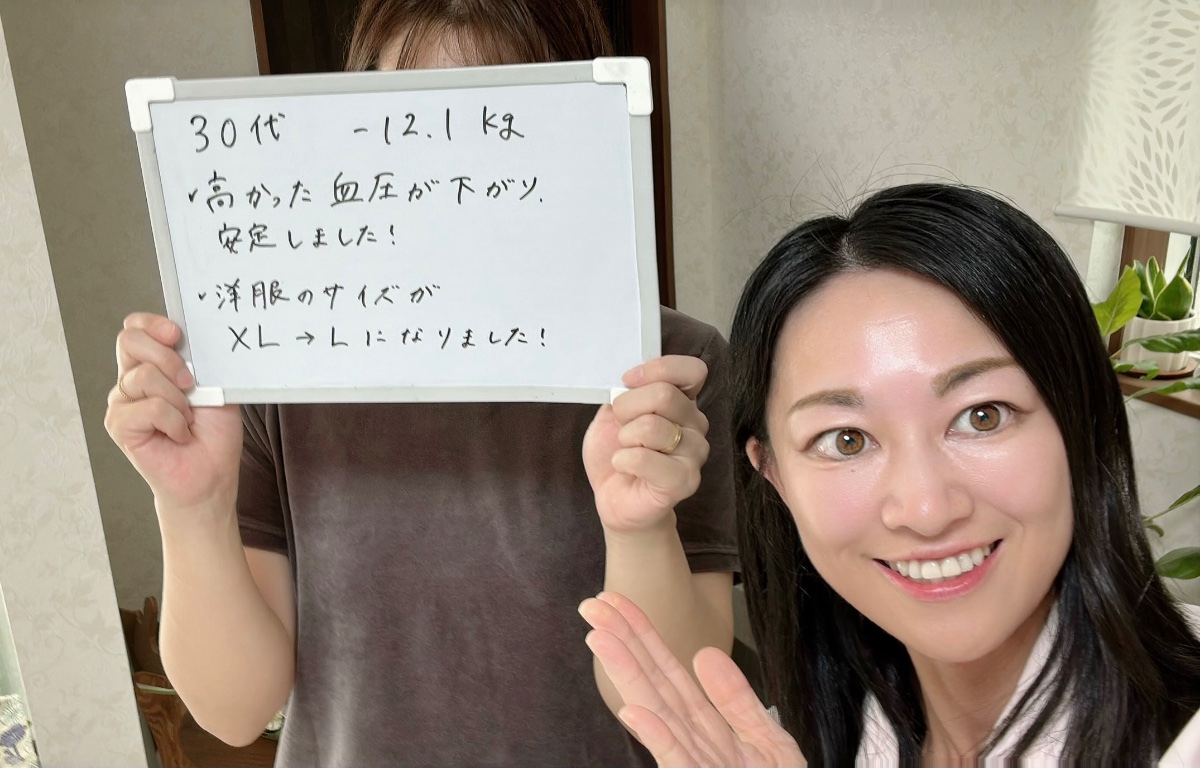 30代 -12.1 kg
・高かった血圧が下がり、
安定しました!
・洋服のサイズが
XL→Lになりました!